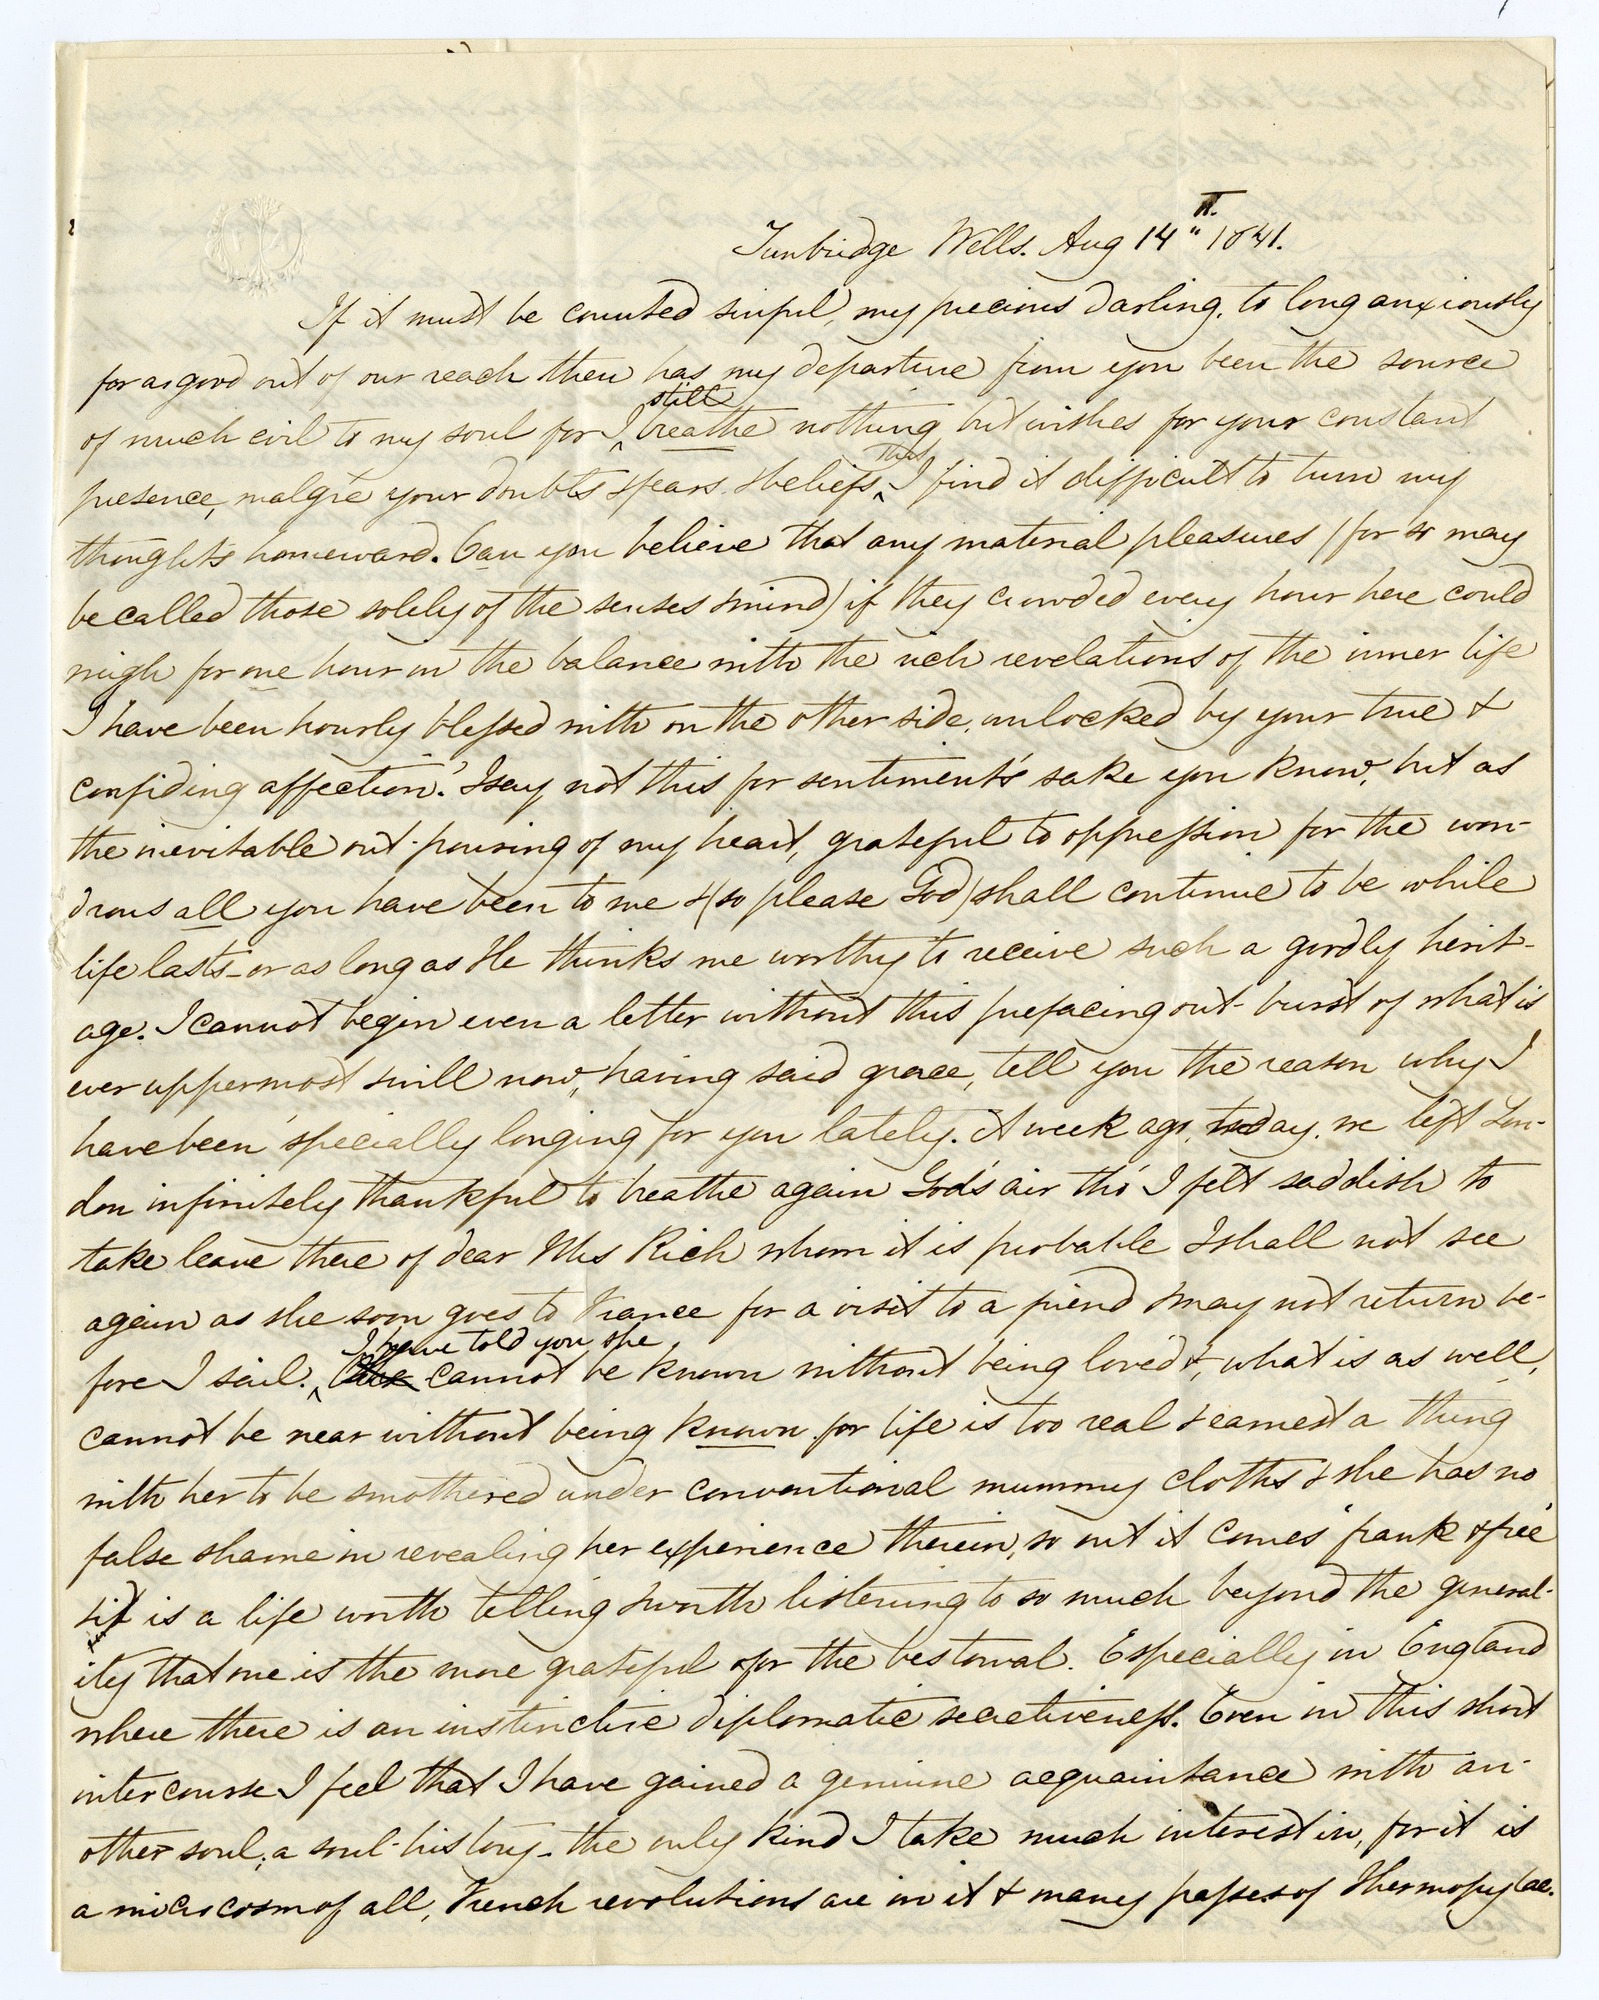 Tunbridge Wells. Aug 14th 1841.
If it must be counted sinful, my precious darling, to long anxiously
for a good out of our reach then has my departure from you been the source
of much evil to my soul for I still breathe nothing but wishes for your constant
presence, malgré your doubts & fears & beliefs. Thus I find it difficult to turn my
thoughts homeward. Can you believe that any material pleasures (for so may
be called those solely of the senses & mind) if they crowded every hour here could
weigh for one hour in the balance with the rich revelations of the inner life
I have been hourly blessed with on the other side, unlocked by your true &
confiding affection? I say not this for sentiment's sake you know, but as
the inevitable out-pouring of my heart, grateful to oppression for the won-
drous all you have been to me & (so please God) shall continue to be while
life lasts - or as long as He thinks me worthy to receive such a goodly herit-
age. I cannot begin even a letter without this prefacing out-burst of what is
ever uppermost & will now, having said grace, tell you the reason why I
have been 'specially longing for you lately. A week ago, today, we left Lon-
don infinitely thankful to breathe again God's air tho' I felt saddish to
take leave there of dear Mrs Rich whom it is probable I shall not see
again as she soon goes to France for a visit to a friend & may not return be-
fore I sail. I have told you she cannot be known without being loved &, what is as well,
cannot be near without being known for life is too real & earnest a thing
with her to be smothered under conventional mummy cloths & she has no
false shame in revealing her experience therein, so out it comes "frank & free"
& it is a life worth telling & worth listening to so much beyond the general-
ity that one is the more grateful for the bestowal. Especially in England
where there is an instinctive diplomatic secretiveness. Even in this short
intercourse I feel that I have gained a genuine acquaintance with an-
other soul; a soul-history - the only kind I take much interest in, for it is
a microcosm of all, French revolutions are in it & many passes of Thermopylae.